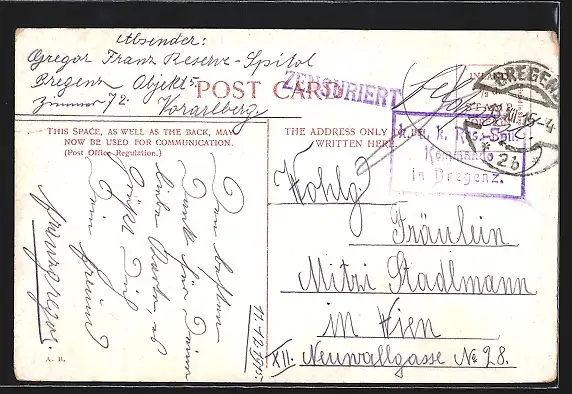 Absender:
Gregor Franz Reserve-Spital
Bregenz Objekt 5
Zimmer 72. Vorarlberg
POST CARD
ZENSURIERT
BREGENZ
2b
k. k. Res.-Spit.
Kommando
in Bregenz.
THIS SPACE, AS WELL AS THE BACK, MAY
NOW BE USED FOR COMMUNICATION.
(Post Office Regulation.)
THE ADDRESS ONLY TO BE
WRITTEN HERE.
Den besten
Dank für Deine
liebe Karte, es
Grüßt Dich
Dein Freund
Franz Gregor.
11.12.1915.
Wohlg.
Fräulein
Mitzi Stadlmann
in Wien
XII. Neuwallgasse № 28.
A. R.